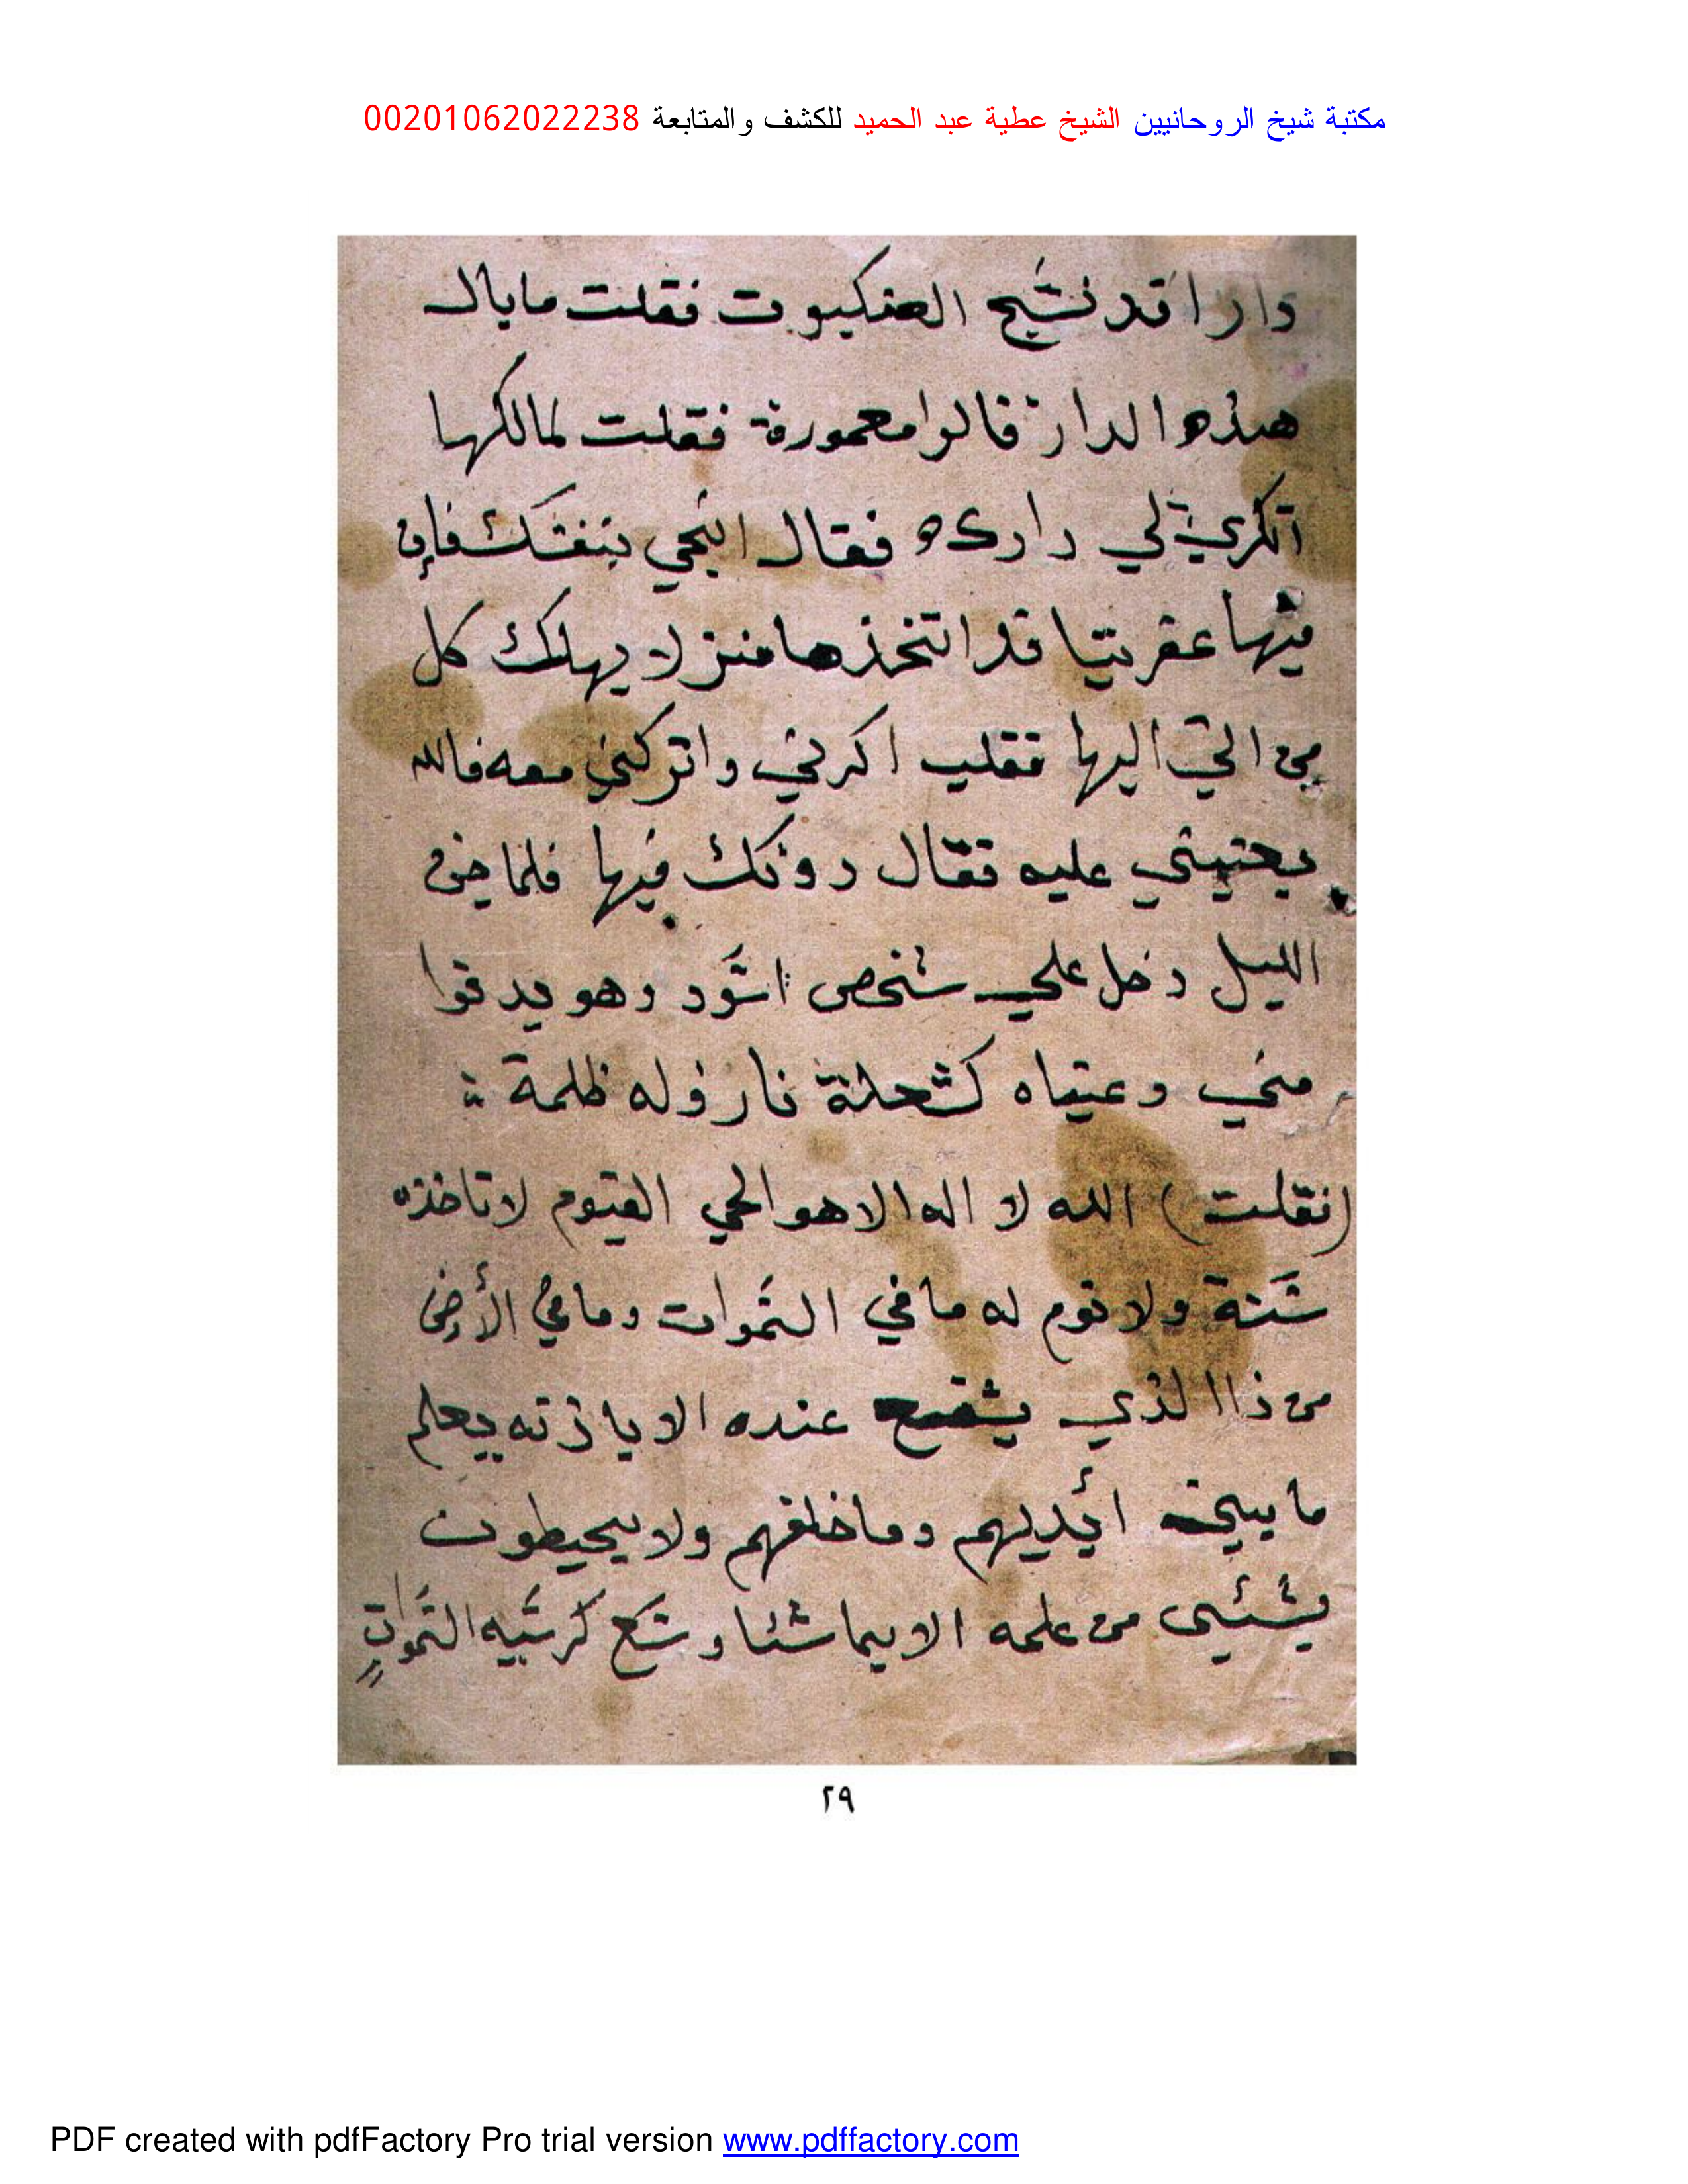 مكتبة شيخ الروحانيين الشيخ عطية عبد الحميد للكشف والمتابعة 00201062022238
دارا قد نسج العنكبوت فقلت ما بال
هذه الدار قالوا معمورة فقلت لمالكها
اتكري لي دارك فقال انجي بنفسك فإن
فيها عفريتا قد اتخذها منزلا يهلك كل
من اتي اليها فقلت اكرني واتركني معه فالله
يعينني عليه فقال دونك فيها فلما جن
الليل دخل علي شخص اسود وهو يدنوا
مني وعيناه كشعلة نار وله ظلمة
(فقلت) الله لا اله الا هو الحي القيوم لا تاخذه
سنة ولا نوم له ما في السموات وما في الأرض
من ذا الذي يشفع عنده الا باذنه يعلم
ما بين أيديهم وما خلفهم ولا يحيطون
بشئي من علمه الا بما شئا وسع كرسيه السموات
٢٩
PDF created with pdfFactory Pro trial version www.pdffactory.com